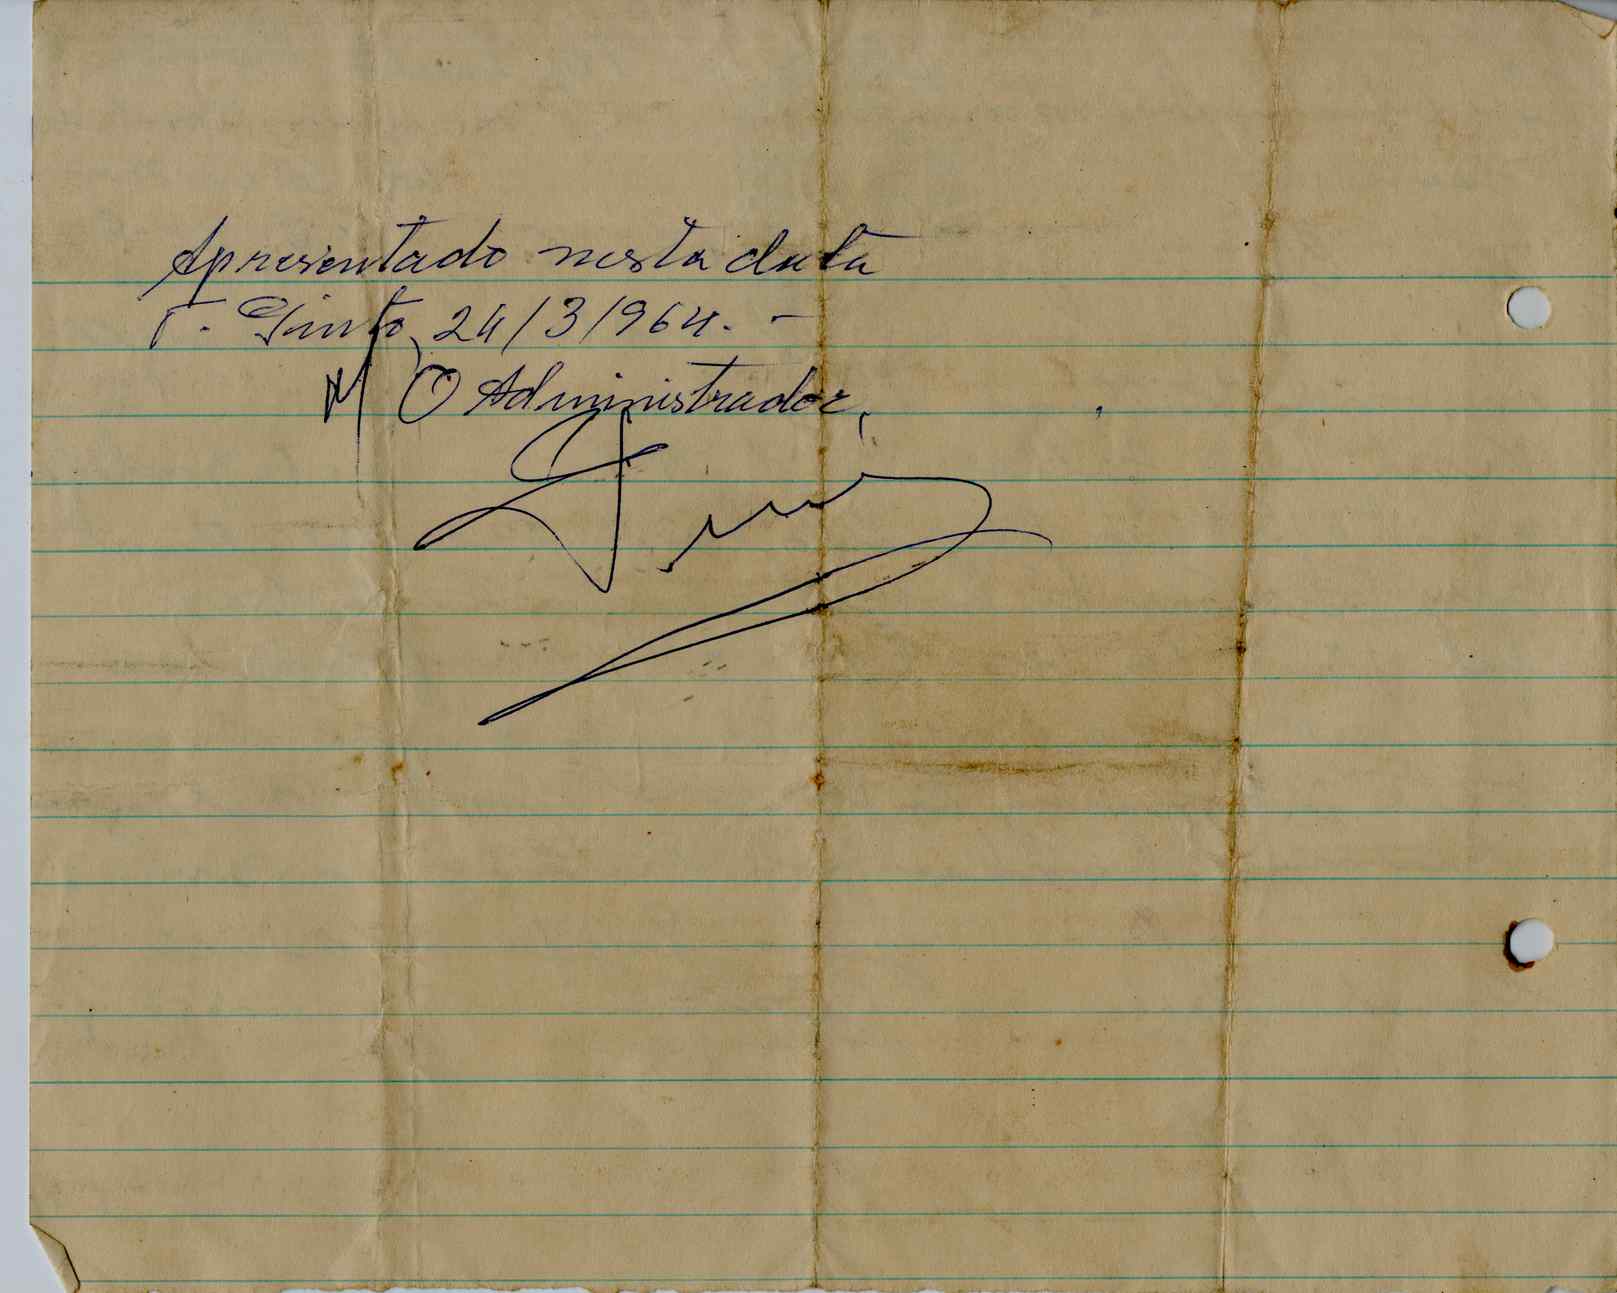 Apresentado nesta data
T. Pinto, 24/3/964. -
O Administrador,